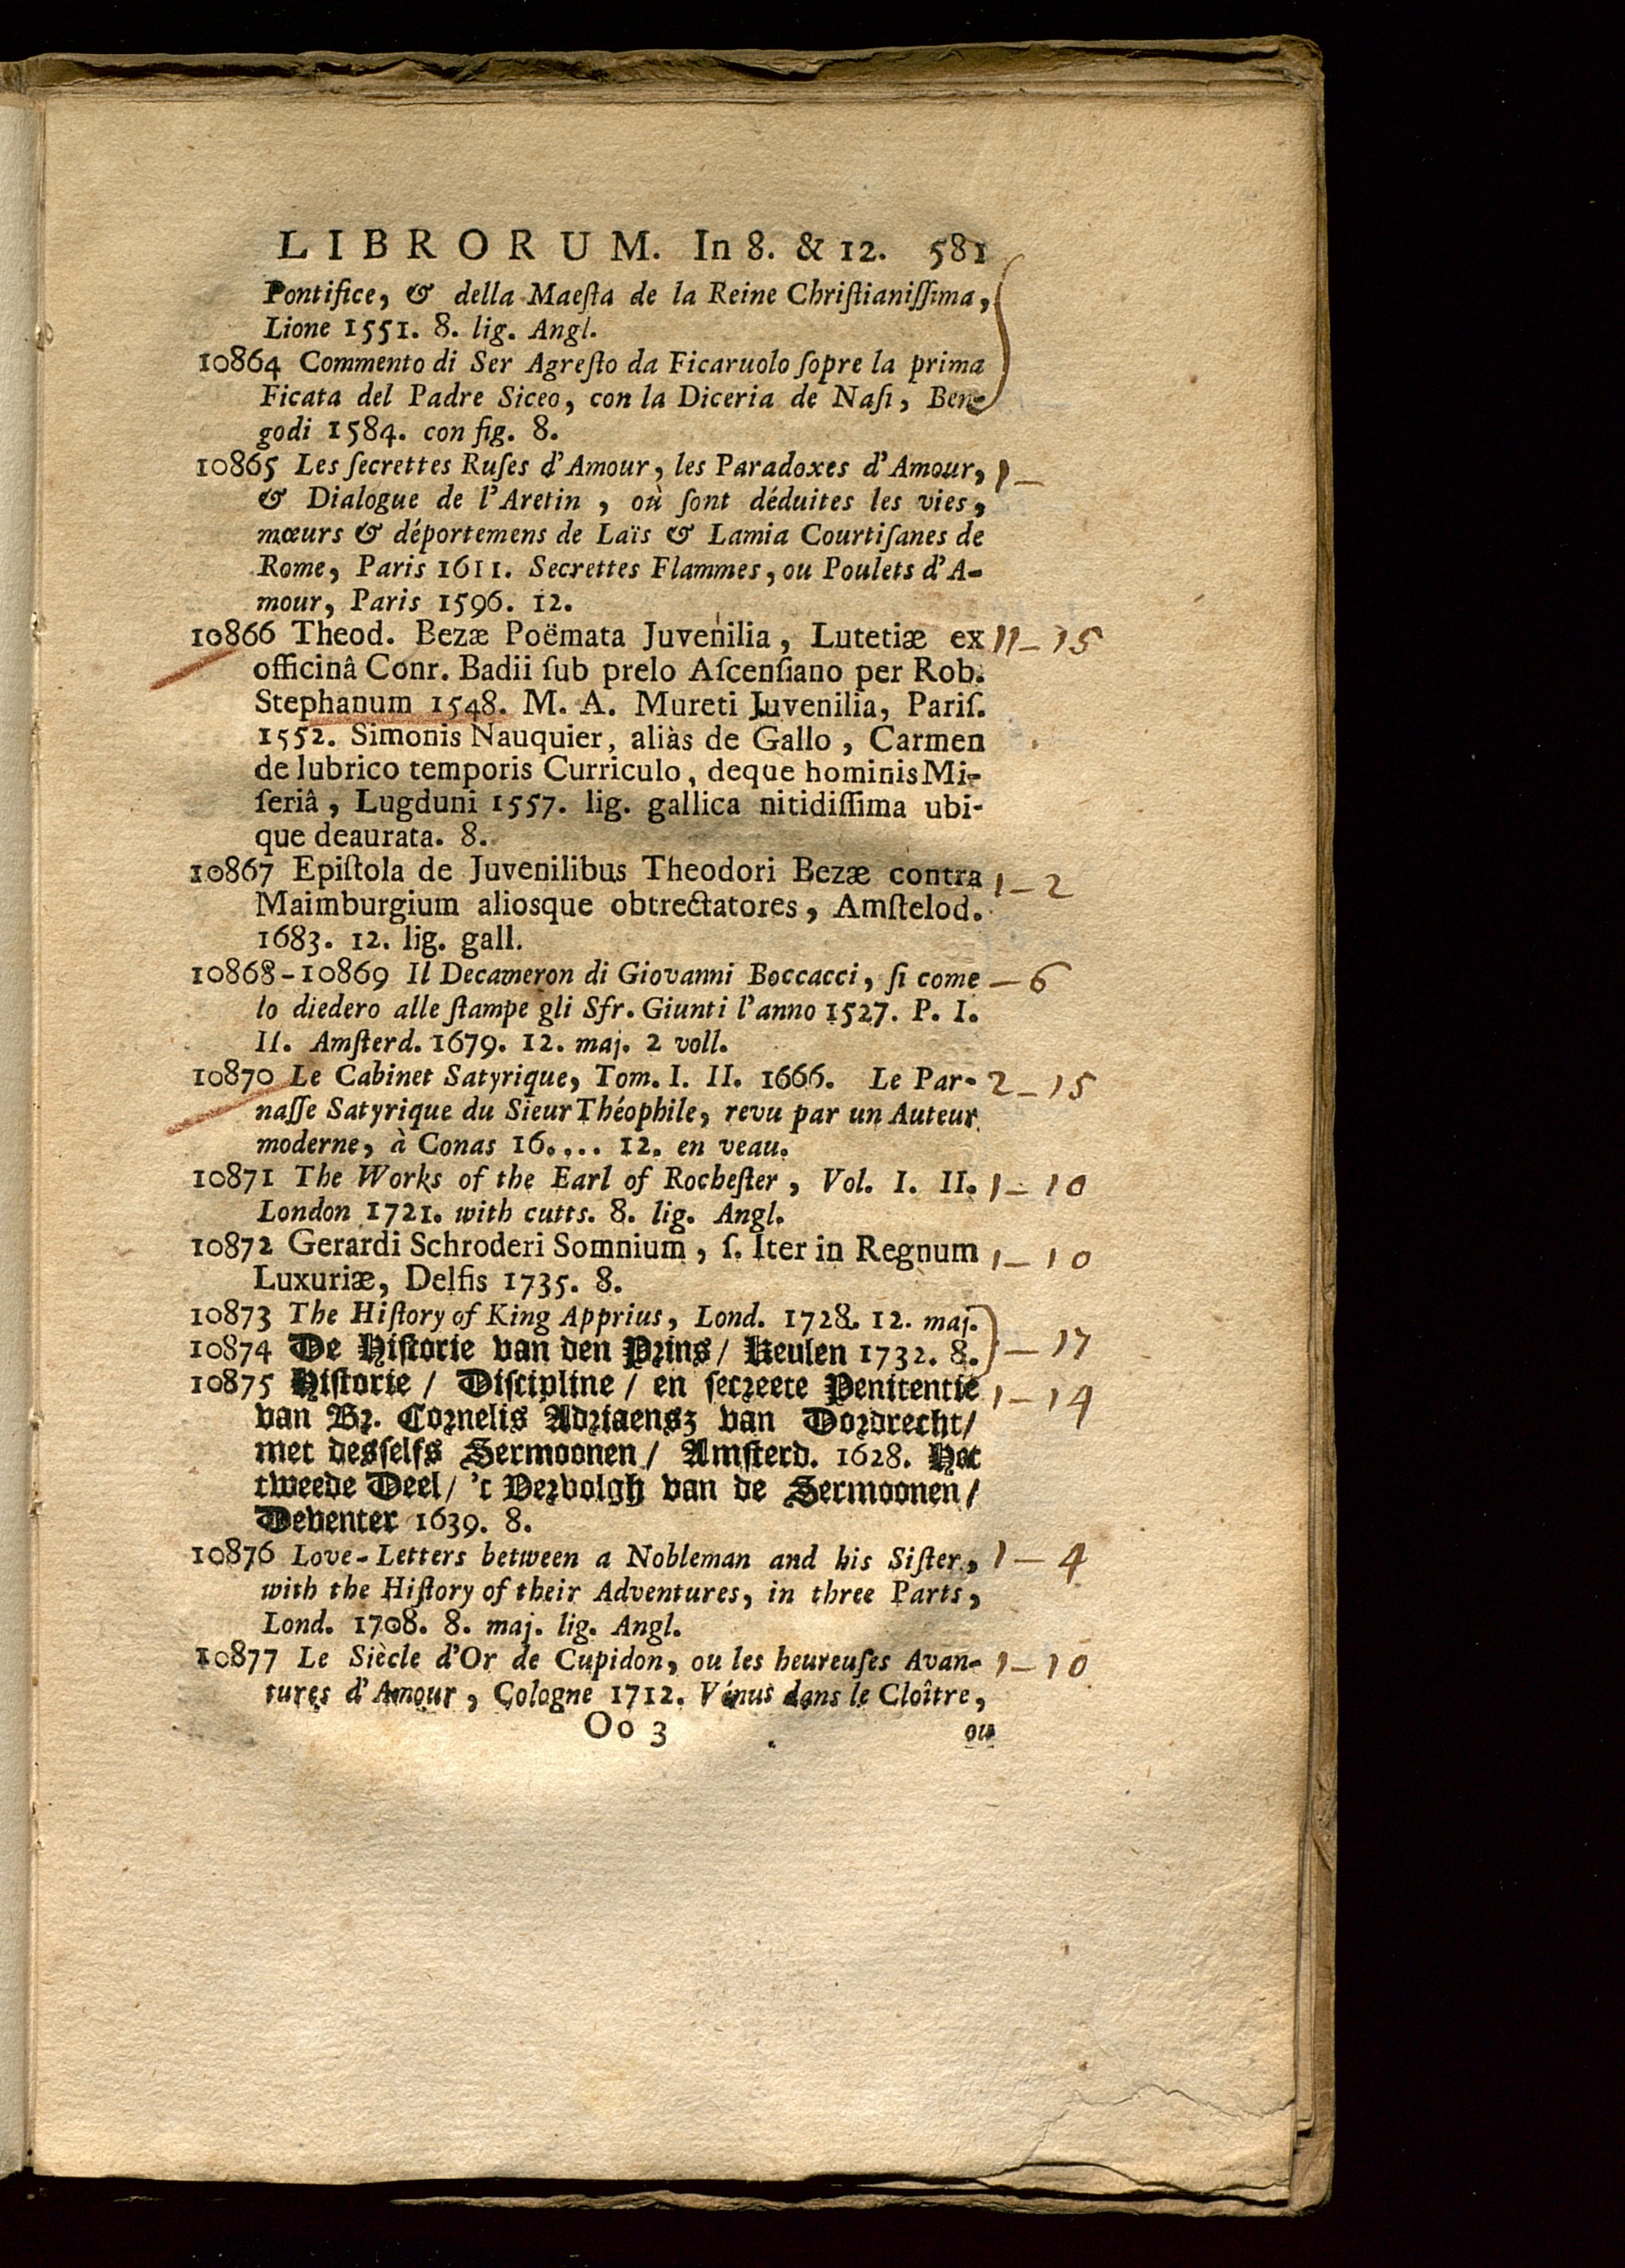 LIBRORUM. In 8. & 12. 581
Pontifice, & della Maeſta de la Reine Chriſtianiſſima,
Lione 1551. 8. lig. Angl.
10864 Commento di Ser Agreſto da Ficaruolo ſopre la prima
Ficata del Padre Siceo, con la Diceria de Naſi, Ben-
godi 1584. con fig. 8.
10865 Les ſecrettes Ruſes d'Amour, les Paradoxes d'Amour, 1 —
& Dialogue de l'Aretin , où ſont déduites les vies,
mœurs & déportemens de Laïs & Lamia Courtiſanes de
Rome, Paris 1611. Secrettes Flammes, ou Poulets d'A-
mour, Paris 1596. 12.
10866 Theod. Bezæ Poëmata Juvenilia, Lutetiæ ex 11 — 15
officinâ Conr. Badii ſub prelo Aſcenſiano per Rob.
Stephanum 1548. M. A. Mureti Juvenilia, Pariſ.
1552. Simonis Nauquier, aliàs de Gallo, Carmen
de lubrico temporis Curriculo, deque hominis Mi-
ſeriâ, Lugduni 1557. lig. gallica nitidiſſima ubi-
que deaurata. 8.
10867 Epiſtola de Juvenilibus Theodori Bezæ contra 1 — 2
Maimburgium aliosque obtrectatores, Amſtelod.
1683. 12. lig. gall.
10868-10869 Il Decameron di Giovanni Boccacci, ſi come — 6
lo diedero alle ſtampe gli Sfr. Giunti l'anno 1527. P. I.
II. Amſterd. 1679. 12. maj. 2 voll.
10870 Le Cabinet Satyrique, Tom. I. II. 1666. Le Par- 2 — 15
naſſe Satyrique du Sieur Théophile, revu par un Auteur
moderne, à Conas 16.... 12. en veau.
10871 The Works of the Earl of Rocheſter, Vol. I. II. 1 — 10
London 1721. with cutts. 8. lig. Angl.
10872 Gerardi Schroderi Somnium, ſ. Iter in Regnum 1 — 10
Luxuriæ, Delfis 1735. 8.
10873 The Hiſtory of King Apprius, Lond. 1728. 12. maj.
10874 De Hiſtorie van den Prins / Keulen 1732. 8. — 17
10875 Hiſtorie / Diſcipline / en ſecreete Penitentie 1 — 14
van Br. Cornelis Adriaensz van Dordrecht /
met desſelfs Sermoonen / Amſterd. 1628. Het
tweede Deel / 't Vervolgh van de Sermoonen /
Deventer 1639. 8.
10876 Love-Letters between a Nobleman and his Siſter, 1 — 4
with the Hiſtory of their Adventures, in three Parts,
Lond. 1708. 8. maj. lig. Angl.
10877 Le Siècle d'Or de Cupidon, ou les heureuſes Avan- 1 — 10
tures d'Amour, Cologne 1712. Vénus dans le Cloître,
Oo 3 ou